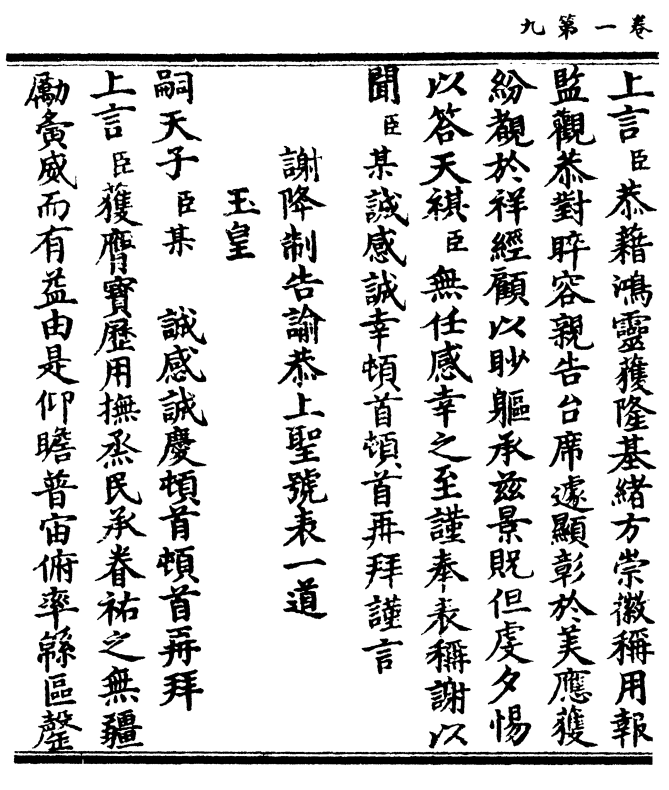 卷一第九
上言臣恭藉鴻靈獲隆基緒方崇徽稱用報
監觀恭對睟容親告台席遽顯彰於美應獲
紛覩於祥經顧以眇軀承茲景貺但虔夕惕
以答天祺臣無任感幸之至謹奉表稱謝以
聞臣某誠感誠幸頓首頓首再拜謹言
謝降制告諭恭上聖號表一道
玉皇
嗣天子臣某誠感誠慶頓首頓首再拜
上言臣獲膺寶歷用撫烝民承眷祐之無疆
勵夤威而有益由是仰瞻普宙俯率緜區罄